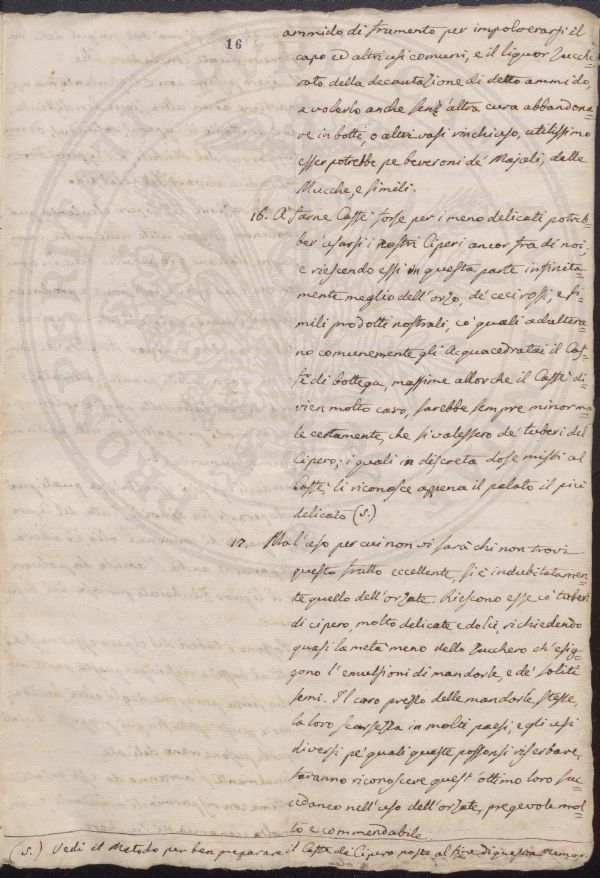 16
ammido di frumento per impolverarsi il
capo ed altri usi comuni, e il liquor Zucche=
rato della decantazione di detto ammido,
a volerlo anche senz' altra cura abbandona=
re in botti, o altri vasi rinchiuso, utilissimo
esser potrebbe pe beveroni de' Majali, delle
Mucche, e simili.
16. A farne Caffè forse per i meno delicati potreb=
ber' usarsi i nostri Ciperi ancor tra di noi;
e riescendo essi in questa parte infinita=
mente meglio dell' orzo, de' ceci rossi, e si=
mili prodotti nostrali, co' quali adultera=
no comunemente gli Acquacedratai il Caf=
fè di bottega, massime allorche il Caffè di=
vien molto caro, sarebbe sempre minor ma=
le certamente, che si valessero de' tuberi del
Cipero; i quali in discreta dose misti al
Caffè, li riconosce appena il palato il più
delicato (s.)
17. Ma l'uso per cui non vi sarà chi non trovi
questo frutto eccellente, si è indubitatamen=
te quello dell' orzate. Riescono esse co' tuberi
di cipero, molto delicate e dolci, richiedendo
quasi la metà meno dello Zucchero ch' esig=
gono l' emulsioni di mandorle, e de' soliti
semi. Il caro prezzo delle mandorle stesse,
la loro scarsezza in molti paesi, e gli usi
diversi pe' quali queste possonsi riserbare,
faranno riconoscere quest' ottimo loro suc=
cedaneo nell' uso dell' orzate, pregevole mol=
to e commendabile
(s.) Vedi il Metodo per ben preparare il Caffè di Cipero posto al fine di questa Memor.